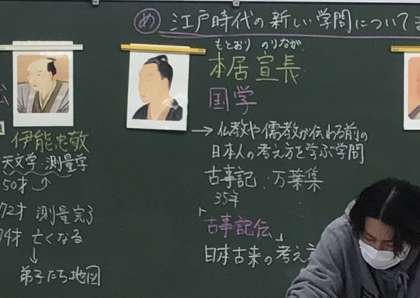 め 江戸時代の新しい学問について
伊能忠敬
天文学 測量学
50才
72才 測量完了
亡くなる
弟子たち地図
もとおり のりなが
本居宣長
国学
→仏教や儒教が伝わる前の
日本人の考え方を学ぶ学問
古事記 万葉集
35年
「古事記伝」
日本古来の考え方